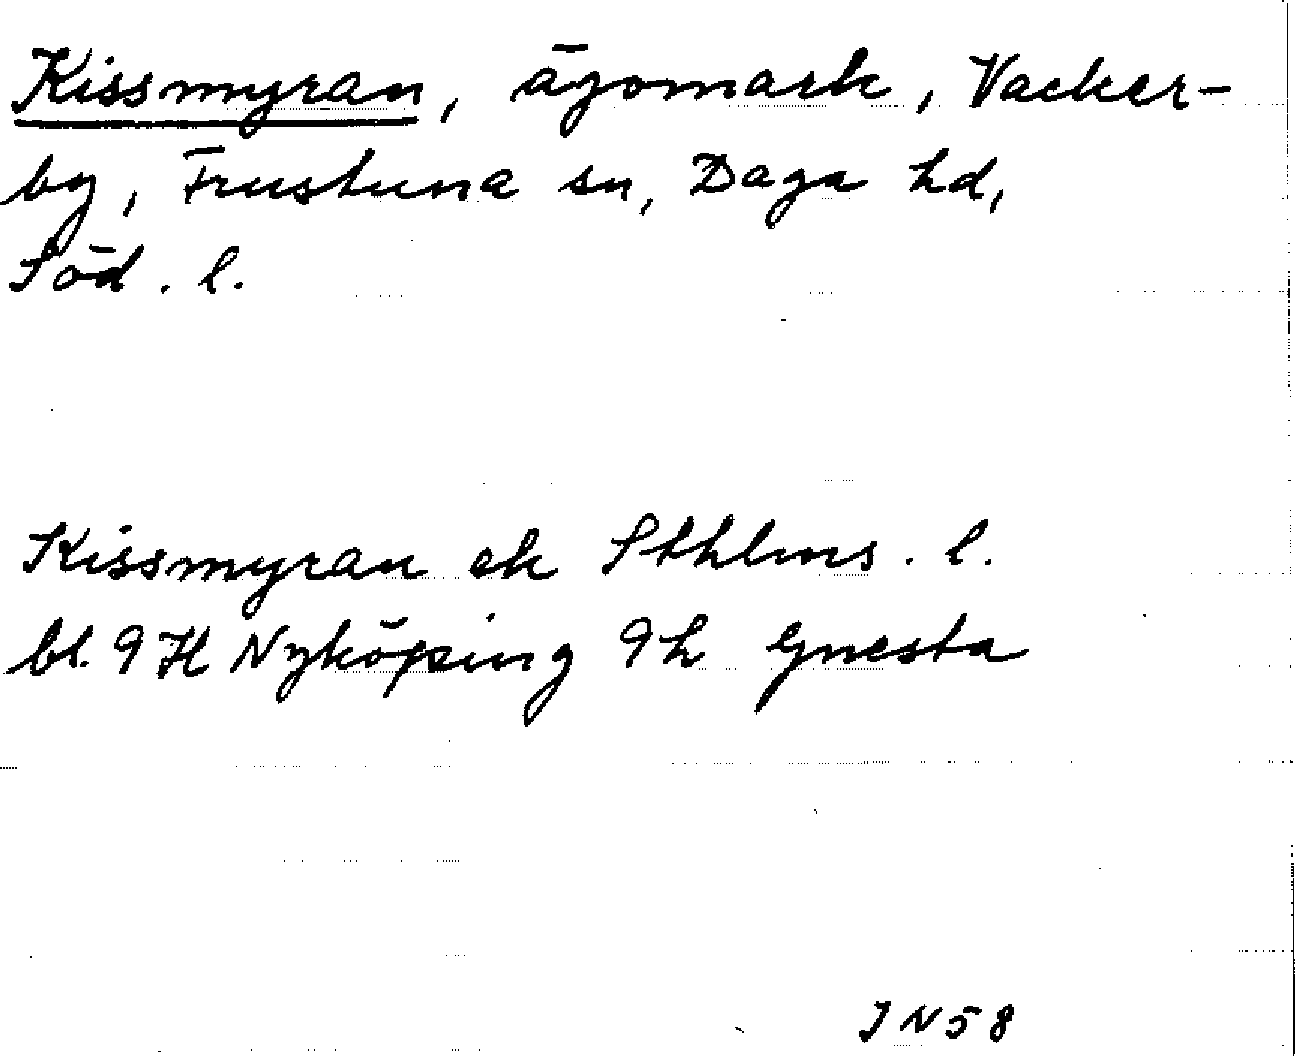 Kissmyran, ägomark, Vacker-
by, Frustuna sn, Daga hd,
Söd. l.
Kissmyran ek Sthlms. l.
bl. 9 H Nyköping 9h Gnesta
JN58